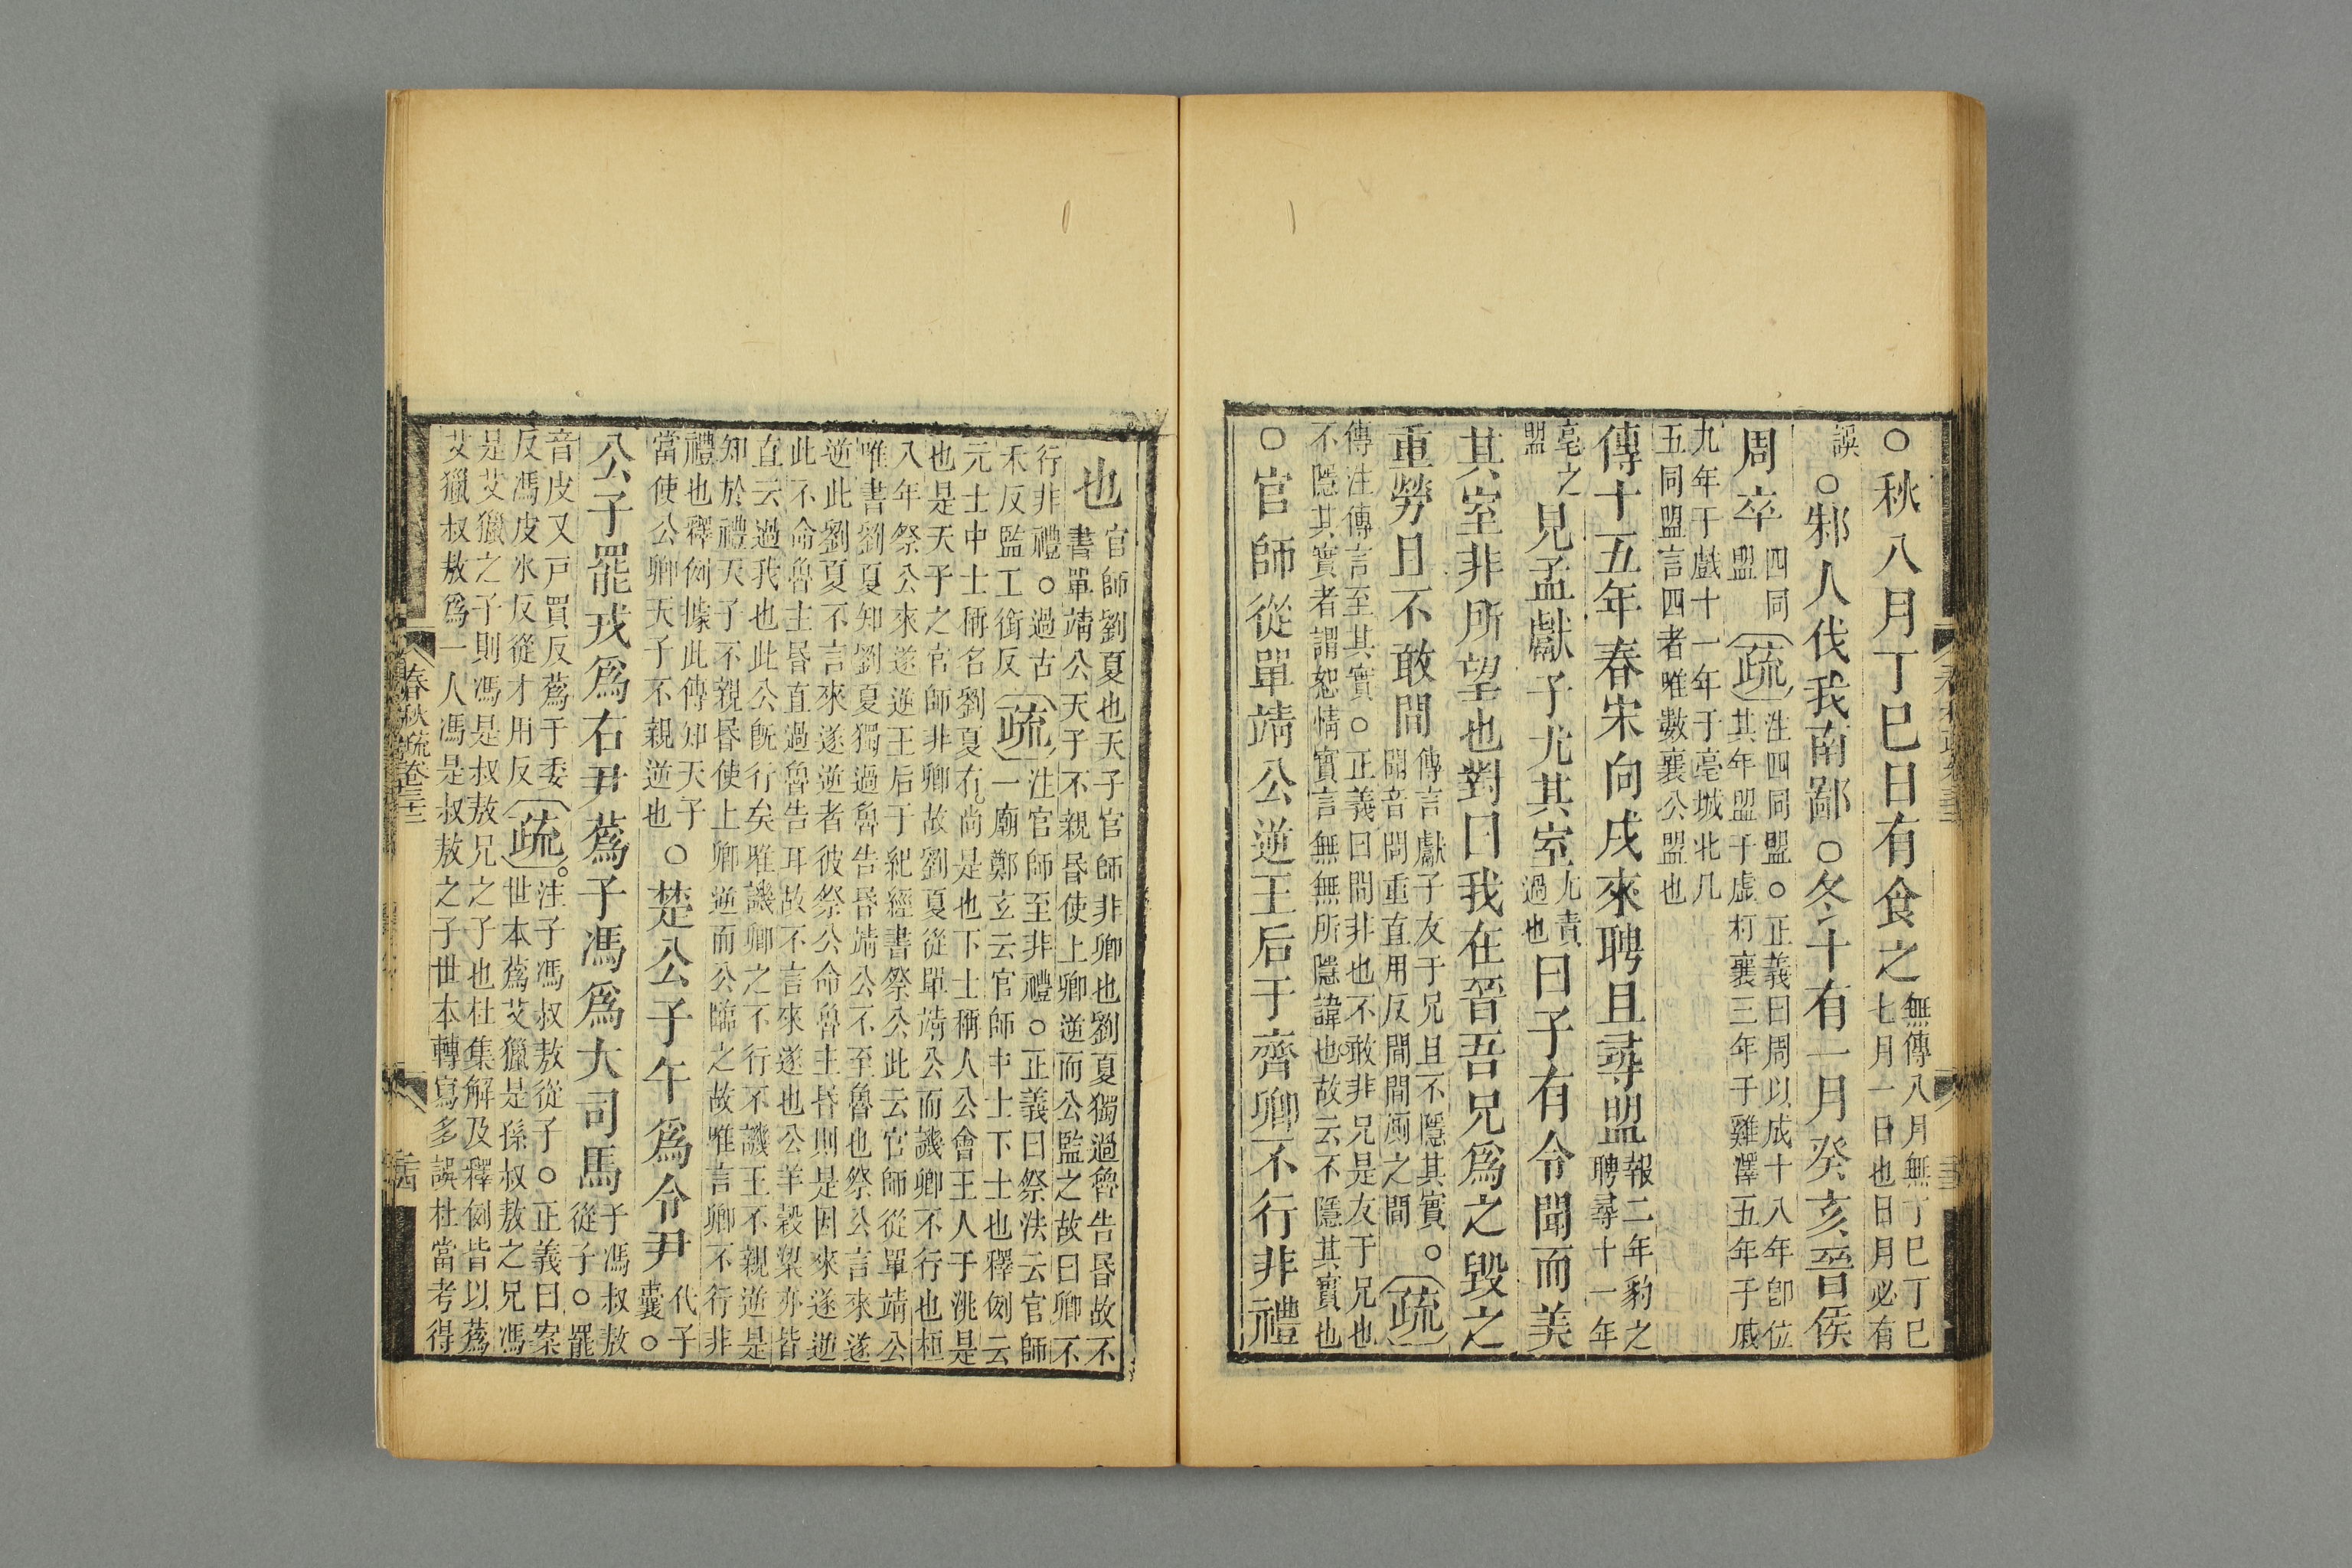 ○秋八月丁巳日有食之無傳八月無丁巳丁巳
七月一日也日月必有
誤○邾人伐我南鄙○冬十有一月癸亥晉侯
周卒四同
盟〔疏〕注四同盟○正義曰周以成十八年卽位
其年盟于虛朾襄三年于雞澤五年于戚
九年于戲十一年于亳城北凡
五同盟言四者唯數襄公盟也
傳十五年春宋向戌來聘且尋盟報二年豹之
聘尋十一年
亳之
盟見孟獻子尤其室尤責
過也曰子有令聞而美
其室非所望也對曰我在晉吾兄爲之毀之
重勞且不敢間傳言獻子友于兄且不隱其實○
聞音問重直用反間間廁之間〔疏〕
傳注傳言至其實○正義曰間非也不敢非兄是友于兄也
不隱其實者謂恕情實言無無所隱諱也故云不隱其實也
○官師從單靖公逆王后于齊卿不行非禮
也官師劉夏也天子官師非卿也劉夏獨過魯告昏故不
書單靖公天子不親昏使上卿逆而公監之故曰卿不
行非禮○過古
禾反監工銜反〔疏〕注官師至非禮○正義曰祭法云官師
一廟鄭玄云官師中士下士也釋例云
元士中士稱名劉夏石尚是也下士稱人公會王人于洮是
也是天子之官師非卿故劉夏從單靖公而譏卿不行也桓
八年祭公來遂逆王后于紀經書祭公此云官師從單靖公
唯書劉夏知劉夏獨過魯告昏靖公不至魯也祭公言來遂
逆此劉夏不言來遂逆者彼祭公命魯主昏則是因來遂逆
此不命魯主昏直過魯告耳故不言來遂也公羊穀梁亦皆
直云過我也此公旣行矣唯譏卿之不行不譏王不親逆是
知於禮天子不親昏使上卿逆而公臨之故唯言卿不行非
禮也釋例據此傳知天子
當使公卿天子不親逆也○楚公子午爲令尹代子
囊○
公子罷戎爲右尹蒍子馮爲大司馬子馮叔敖
從子○罷
音皮又戸買反蒍于委
反馮皮氷反從才用反〔疏〕注子馮叔敖從子○正義曰案
世本蒍艾獵是孫叔敖之兄馮
是艾獵之子則馮是叔敖兄之子也杜集解及釋例皆以蒍
艾獵叔敖爲一人馮是叔敖之子世本轉寫多誤杜當考得
春秋疏卷三十二